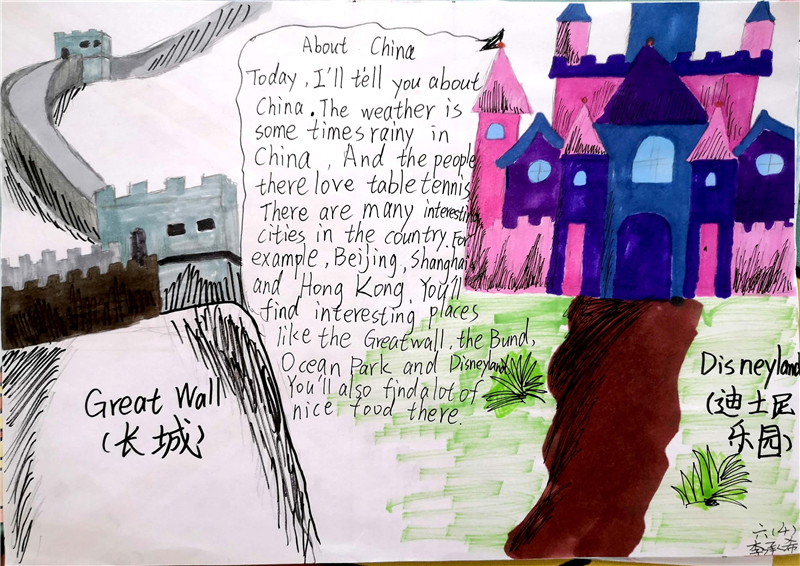 About China
Today, I'll tell you about
China. The weather is
some times rainy in
China, And the people
there love table tennis
There are many interesting
cities in the country. For
example, Beijing, Shanghai
and Hong Kong. You'll
find interesting places
like the Greatwall, the Bund,
Ocean Park and Disneyland
You'll also find a lot of
nice food there.
Great Wall
(长城)
Disneyland
(迪士尼
乐园)
六(4)
李承希